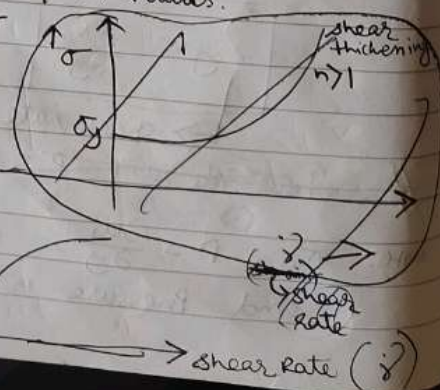 σ
shear
thickening
n>1
σy
γ̇
shear
rate
shear Rate (γ̇)